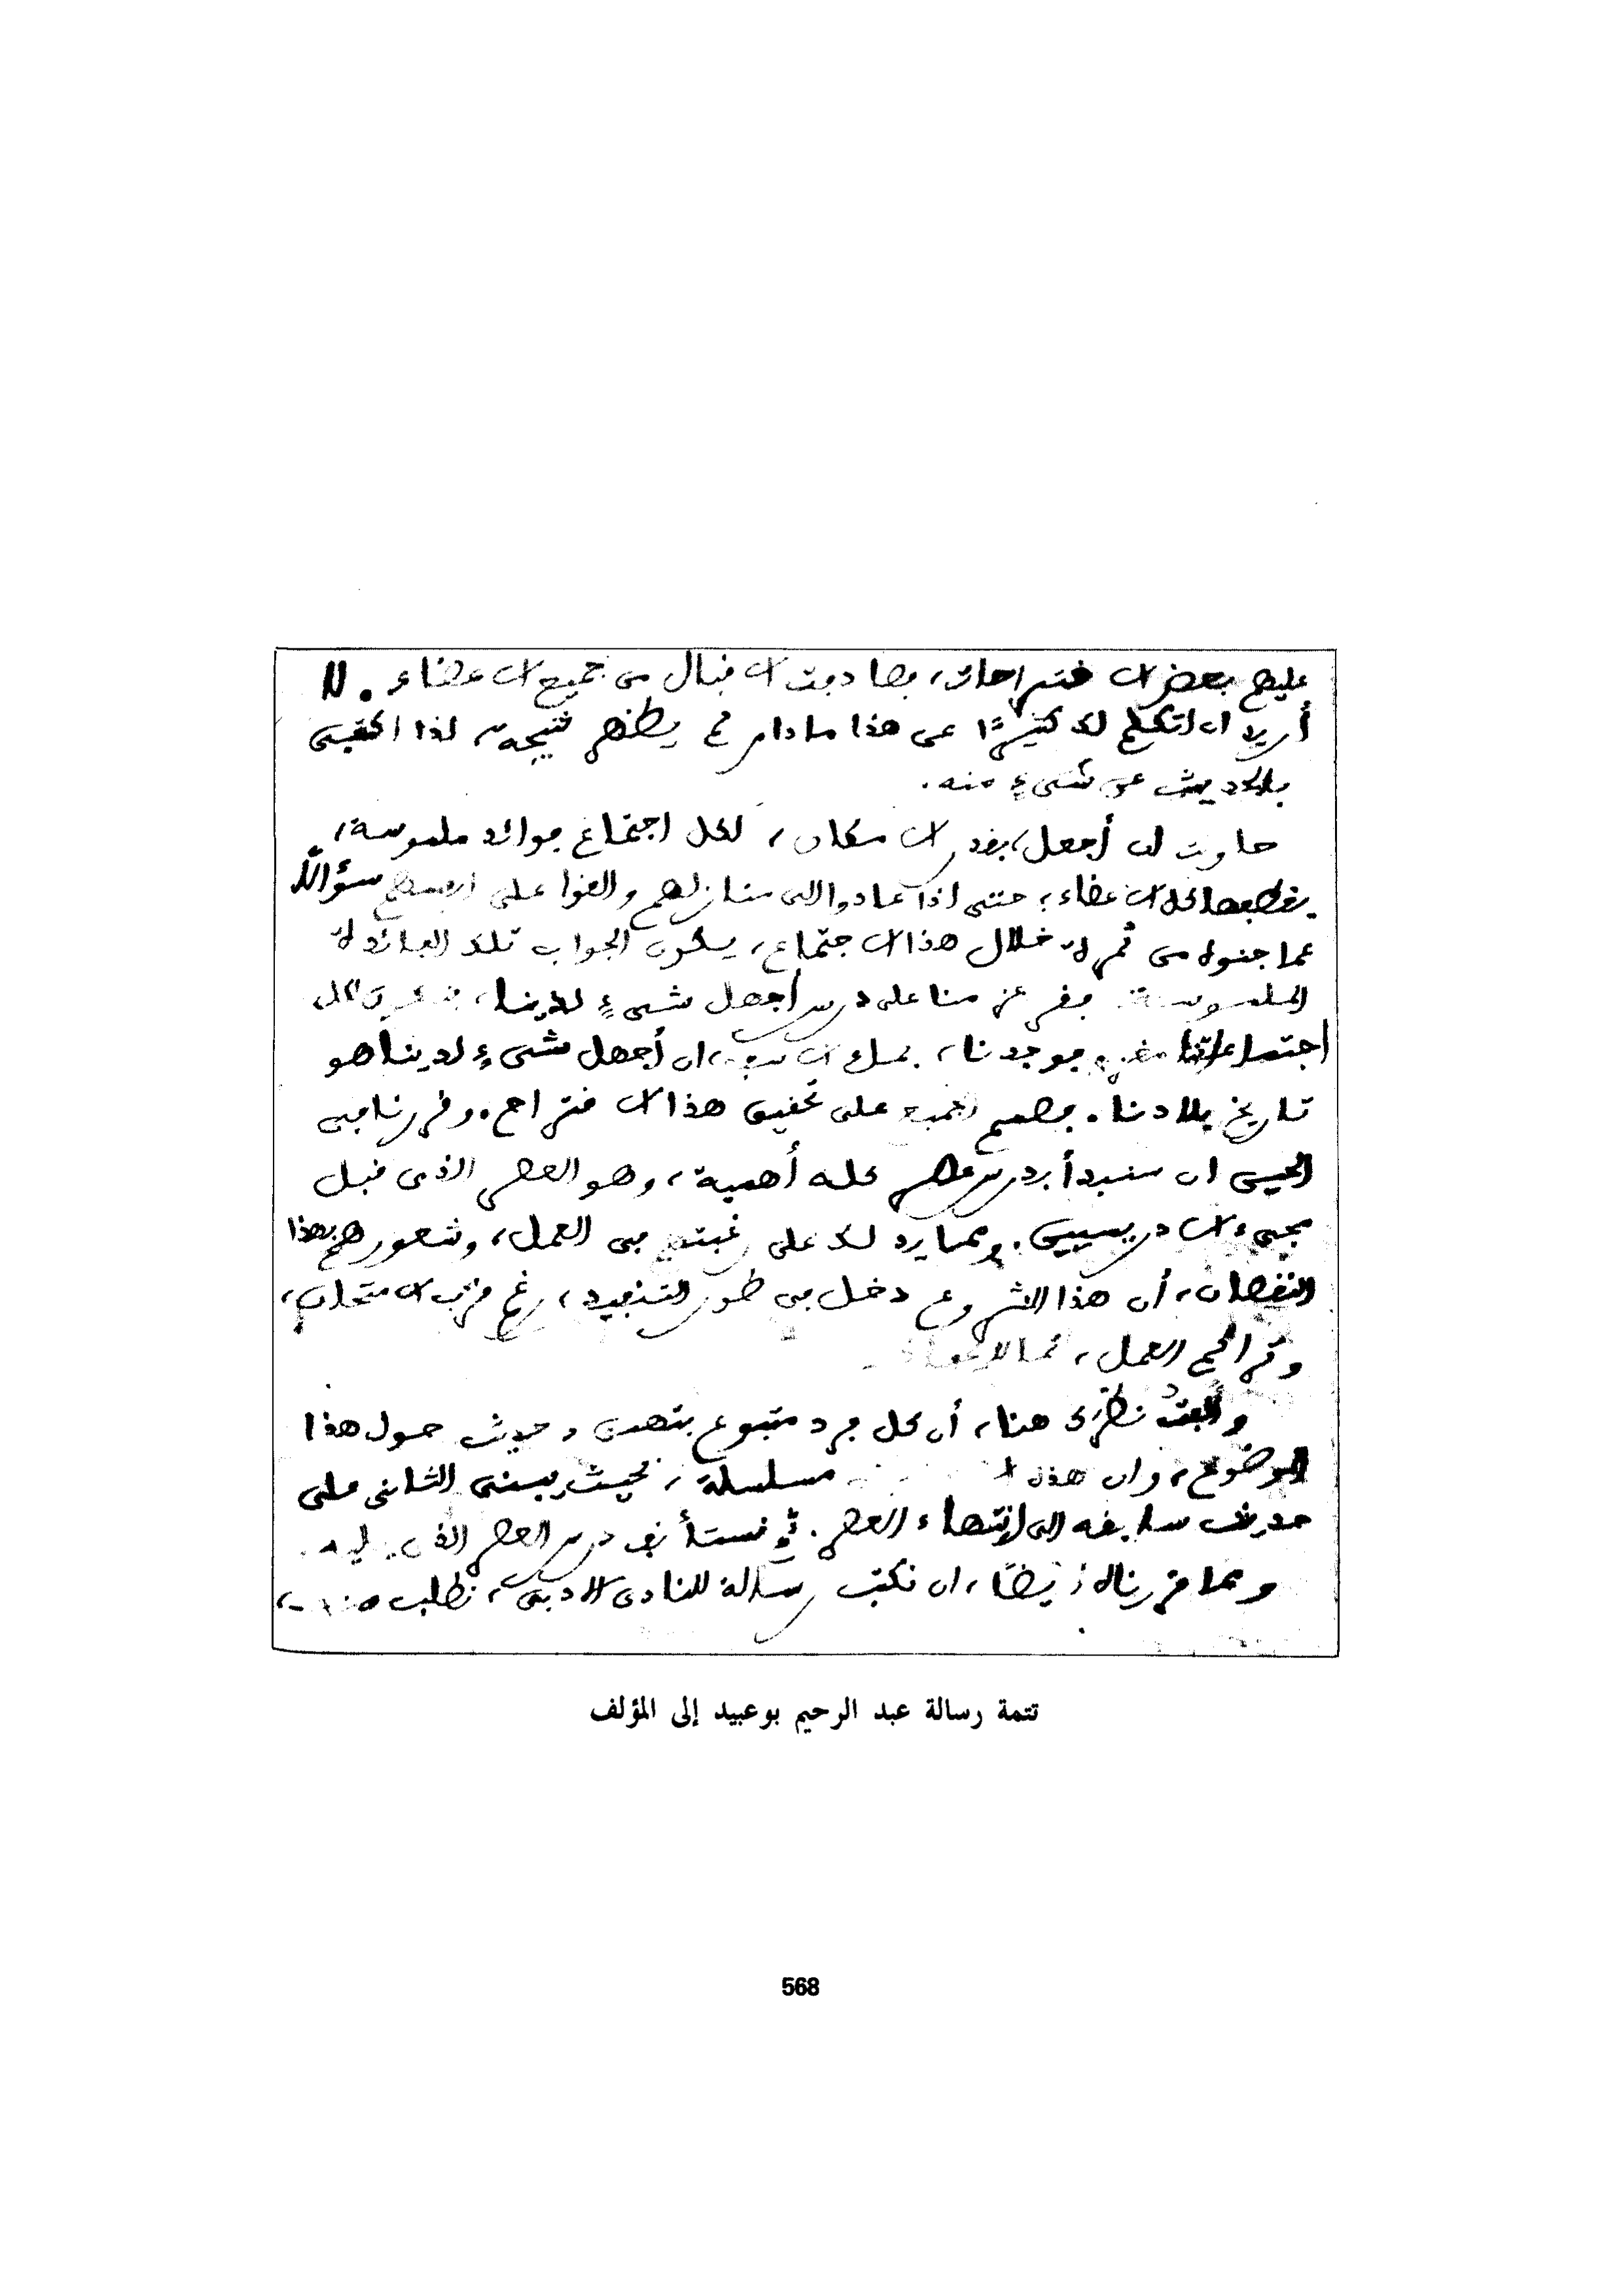 عليهم بعض الاقتراحات، فصادفت الاقبال من جميع الاعضاء. لا
أريد ان اتكلم لك كثيرًا عن هذا مادام لم يظهر نتيجة، لذا اكتفي
بالحديث عن شيءٍ منه.
حاولت ان أجعل، بقدر الامكان، لكل اجتماع فوائد ملموسة،
يقطفها كل الاعضاء؛ حتى اذا عادوا الى منازلهم والقوا على انفسهم سؤالًا
عما جنوه من ثمرة خلال هذا الاجتماع، يكون الجواب تلك الفائدة
الملموسة. فقر عزمنا على درس أجهل شيءٍ لدينا، في كل
اجتماعاتنا فوجدنا، ان أجهل شيءٍ لدينا هو
تاريخ بلادنا. فصمم الجميع على تحقيق هذا الاقتراح. وقررنا في
الحين ان سنبدأ بدرس عصر كله أهمية، وهو العصر الذي قبل
مجيء الادريسيين. ومما يدلك على رغبتهم في العمل، وشعورهم بهذا
النقصان، أن هذا المشروع دخل في طور التنفيذ، رغم قرب الامتحان،
وتراكم العمل،
وألفتُ نظرك هنا، أن كل فرد متبوع بتصدى وحديث حول هذا
الموضوع، وان هذه مسلسلة، بحيث يبني الثاني على
حديث سابقه الى انتهاء العصر. ثم نستأنف درس العصر الذي يليه.
ومما قررناه أيضًا، ان نكتب رسالة للنادي الادبي، نطلب
تتمة رسالة عبد الرحيم بوعبيد إلى المؤلف
568